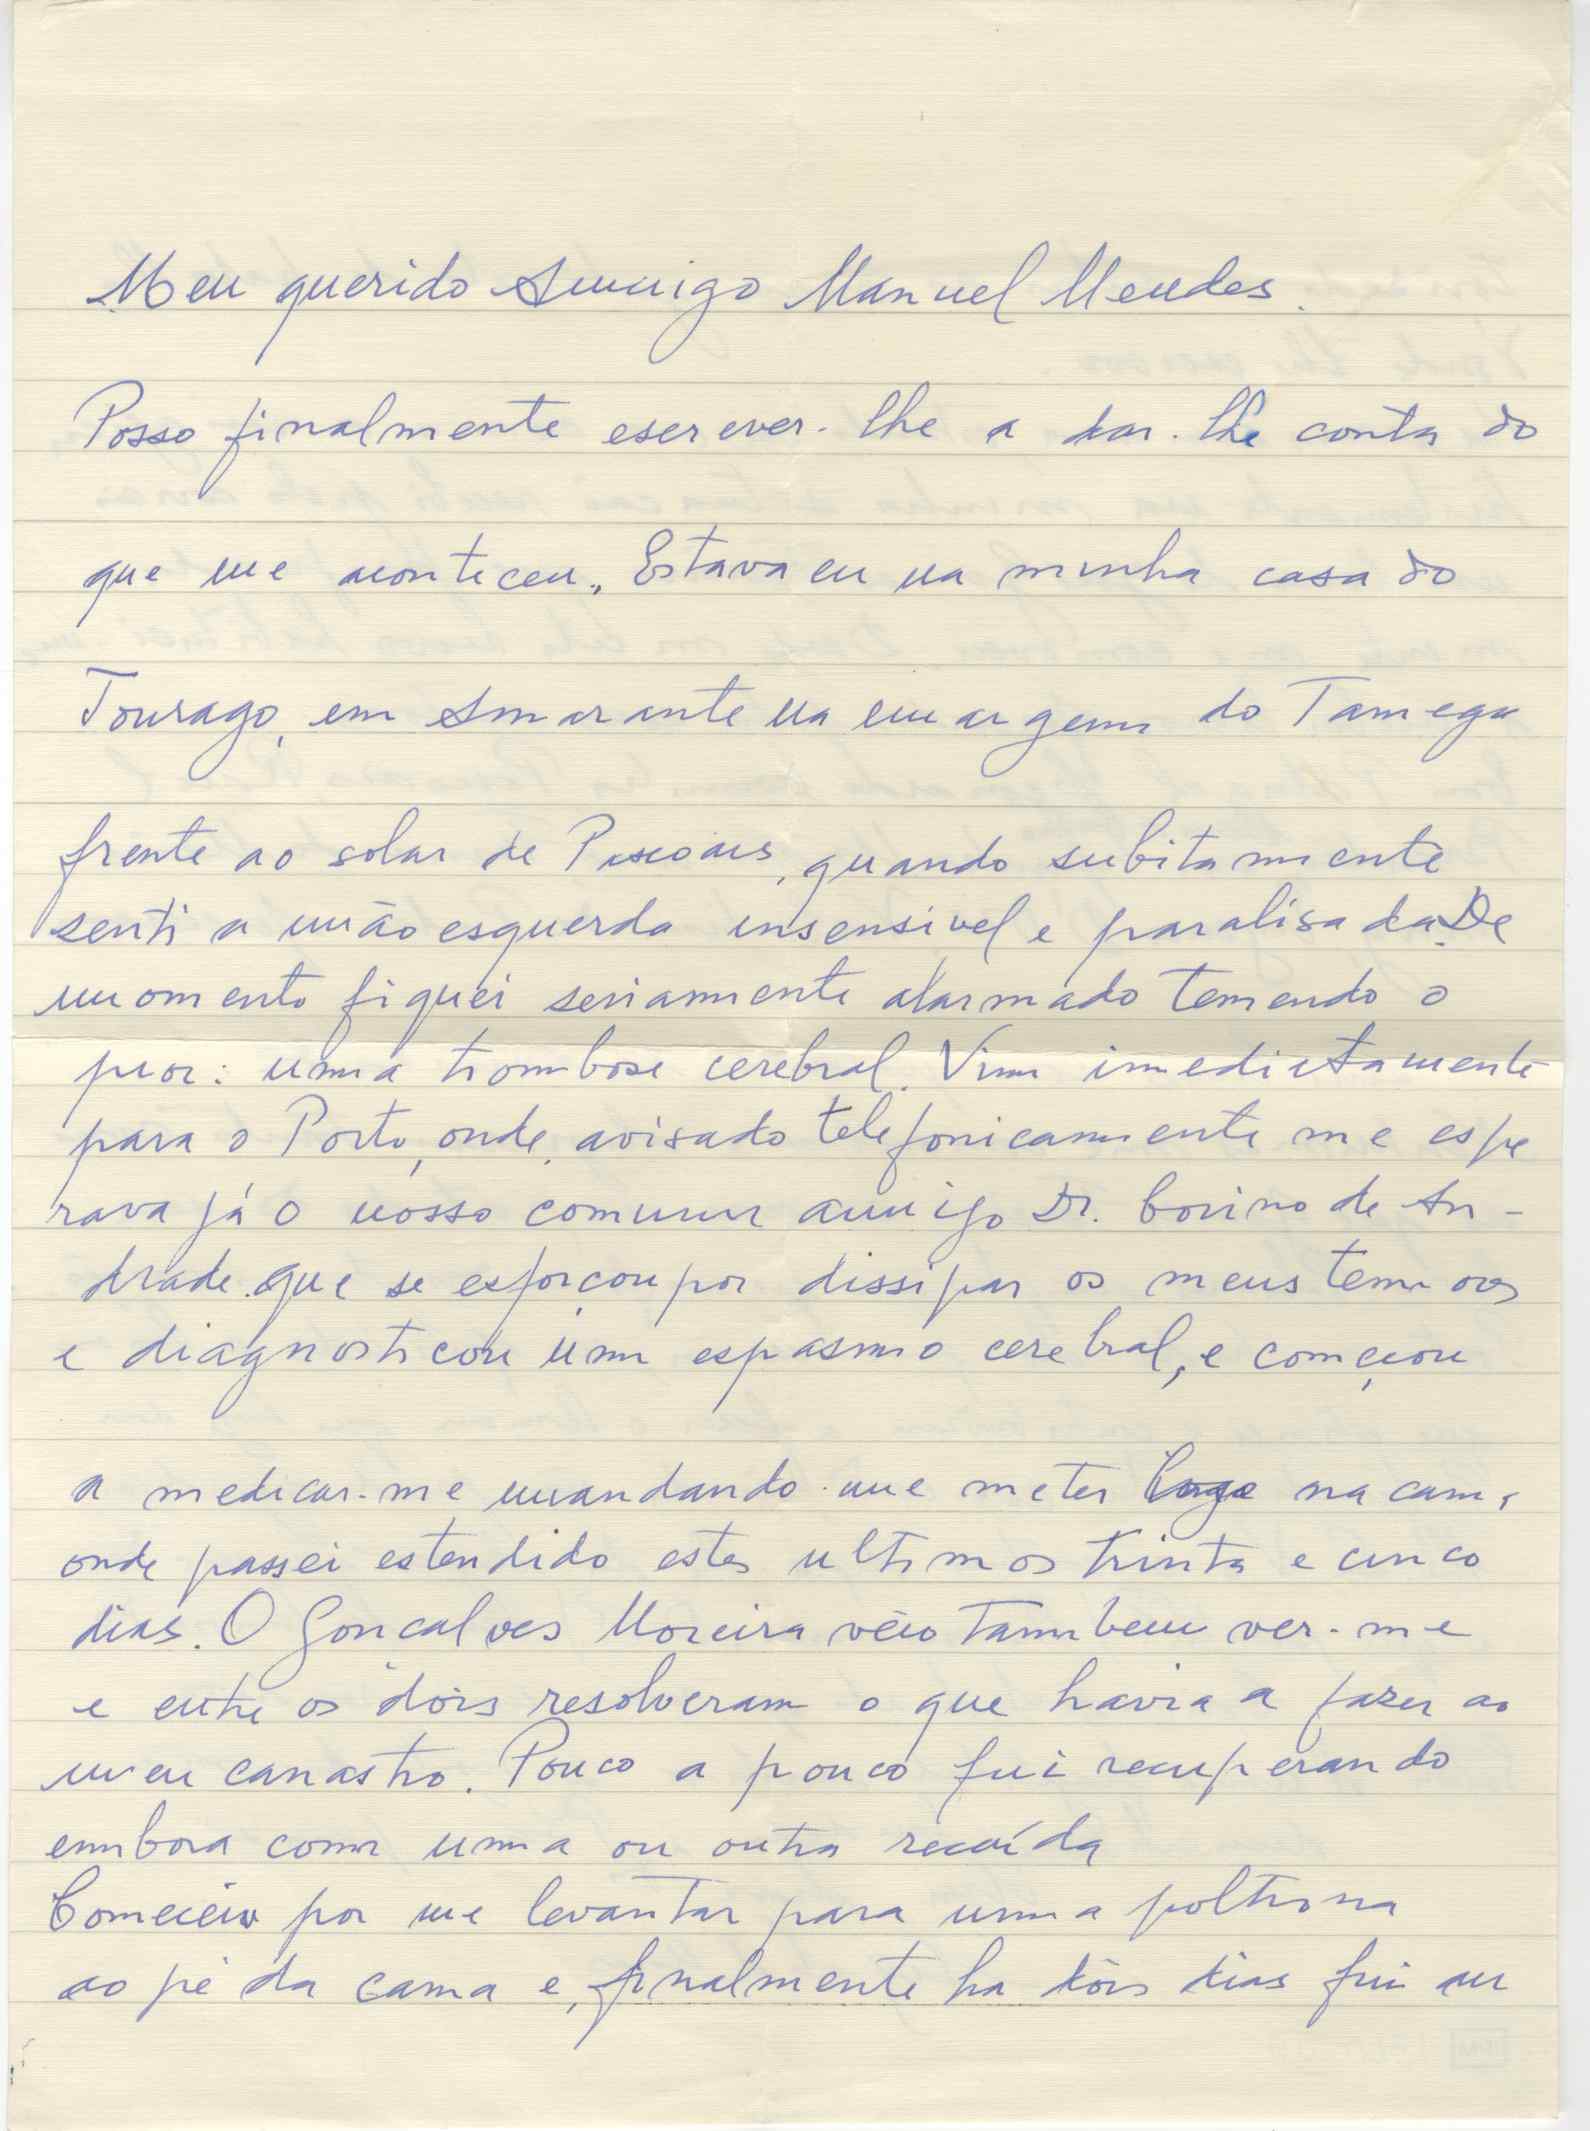 Meu querido Amigo Manuel Mendes.
Posso finalmente escrever-lhe a dar-lhe conta do
que me aconteceu. Estava eu na minha casa do
Tourago, em Amarante na margem do Tamega
frente ao solar de Pascoais, quando subitamente
senti a mão esquerda insensivel e paralisada. De
momento fiquei seriamente alarmado temendo o
pior: uma trombose cerebral. Vim imediatamente
para o Porto, onde, avisado telefonicamente me espe
rava já o nosso comum amigo Dr. Corino de An-
drade. que se esforçou por dissipar os meus temores
e diagnosticou um espasmo cerebral, e começou
a medicar-me mandando-me meter logo na cama,
onde passei estendido estes ultimos trinta e cinco
dias. O Goncalves Moreira vèio tambem ver-me
e entre os dòis resolveram o que havia a fazer ao
meu canastro. Pouco a pouco fui recuperando
embora com uma ou outra recaída
Comecei por me levantar para uma poltrona
ao pé da cama e, finalmente ha dòis dias fui au